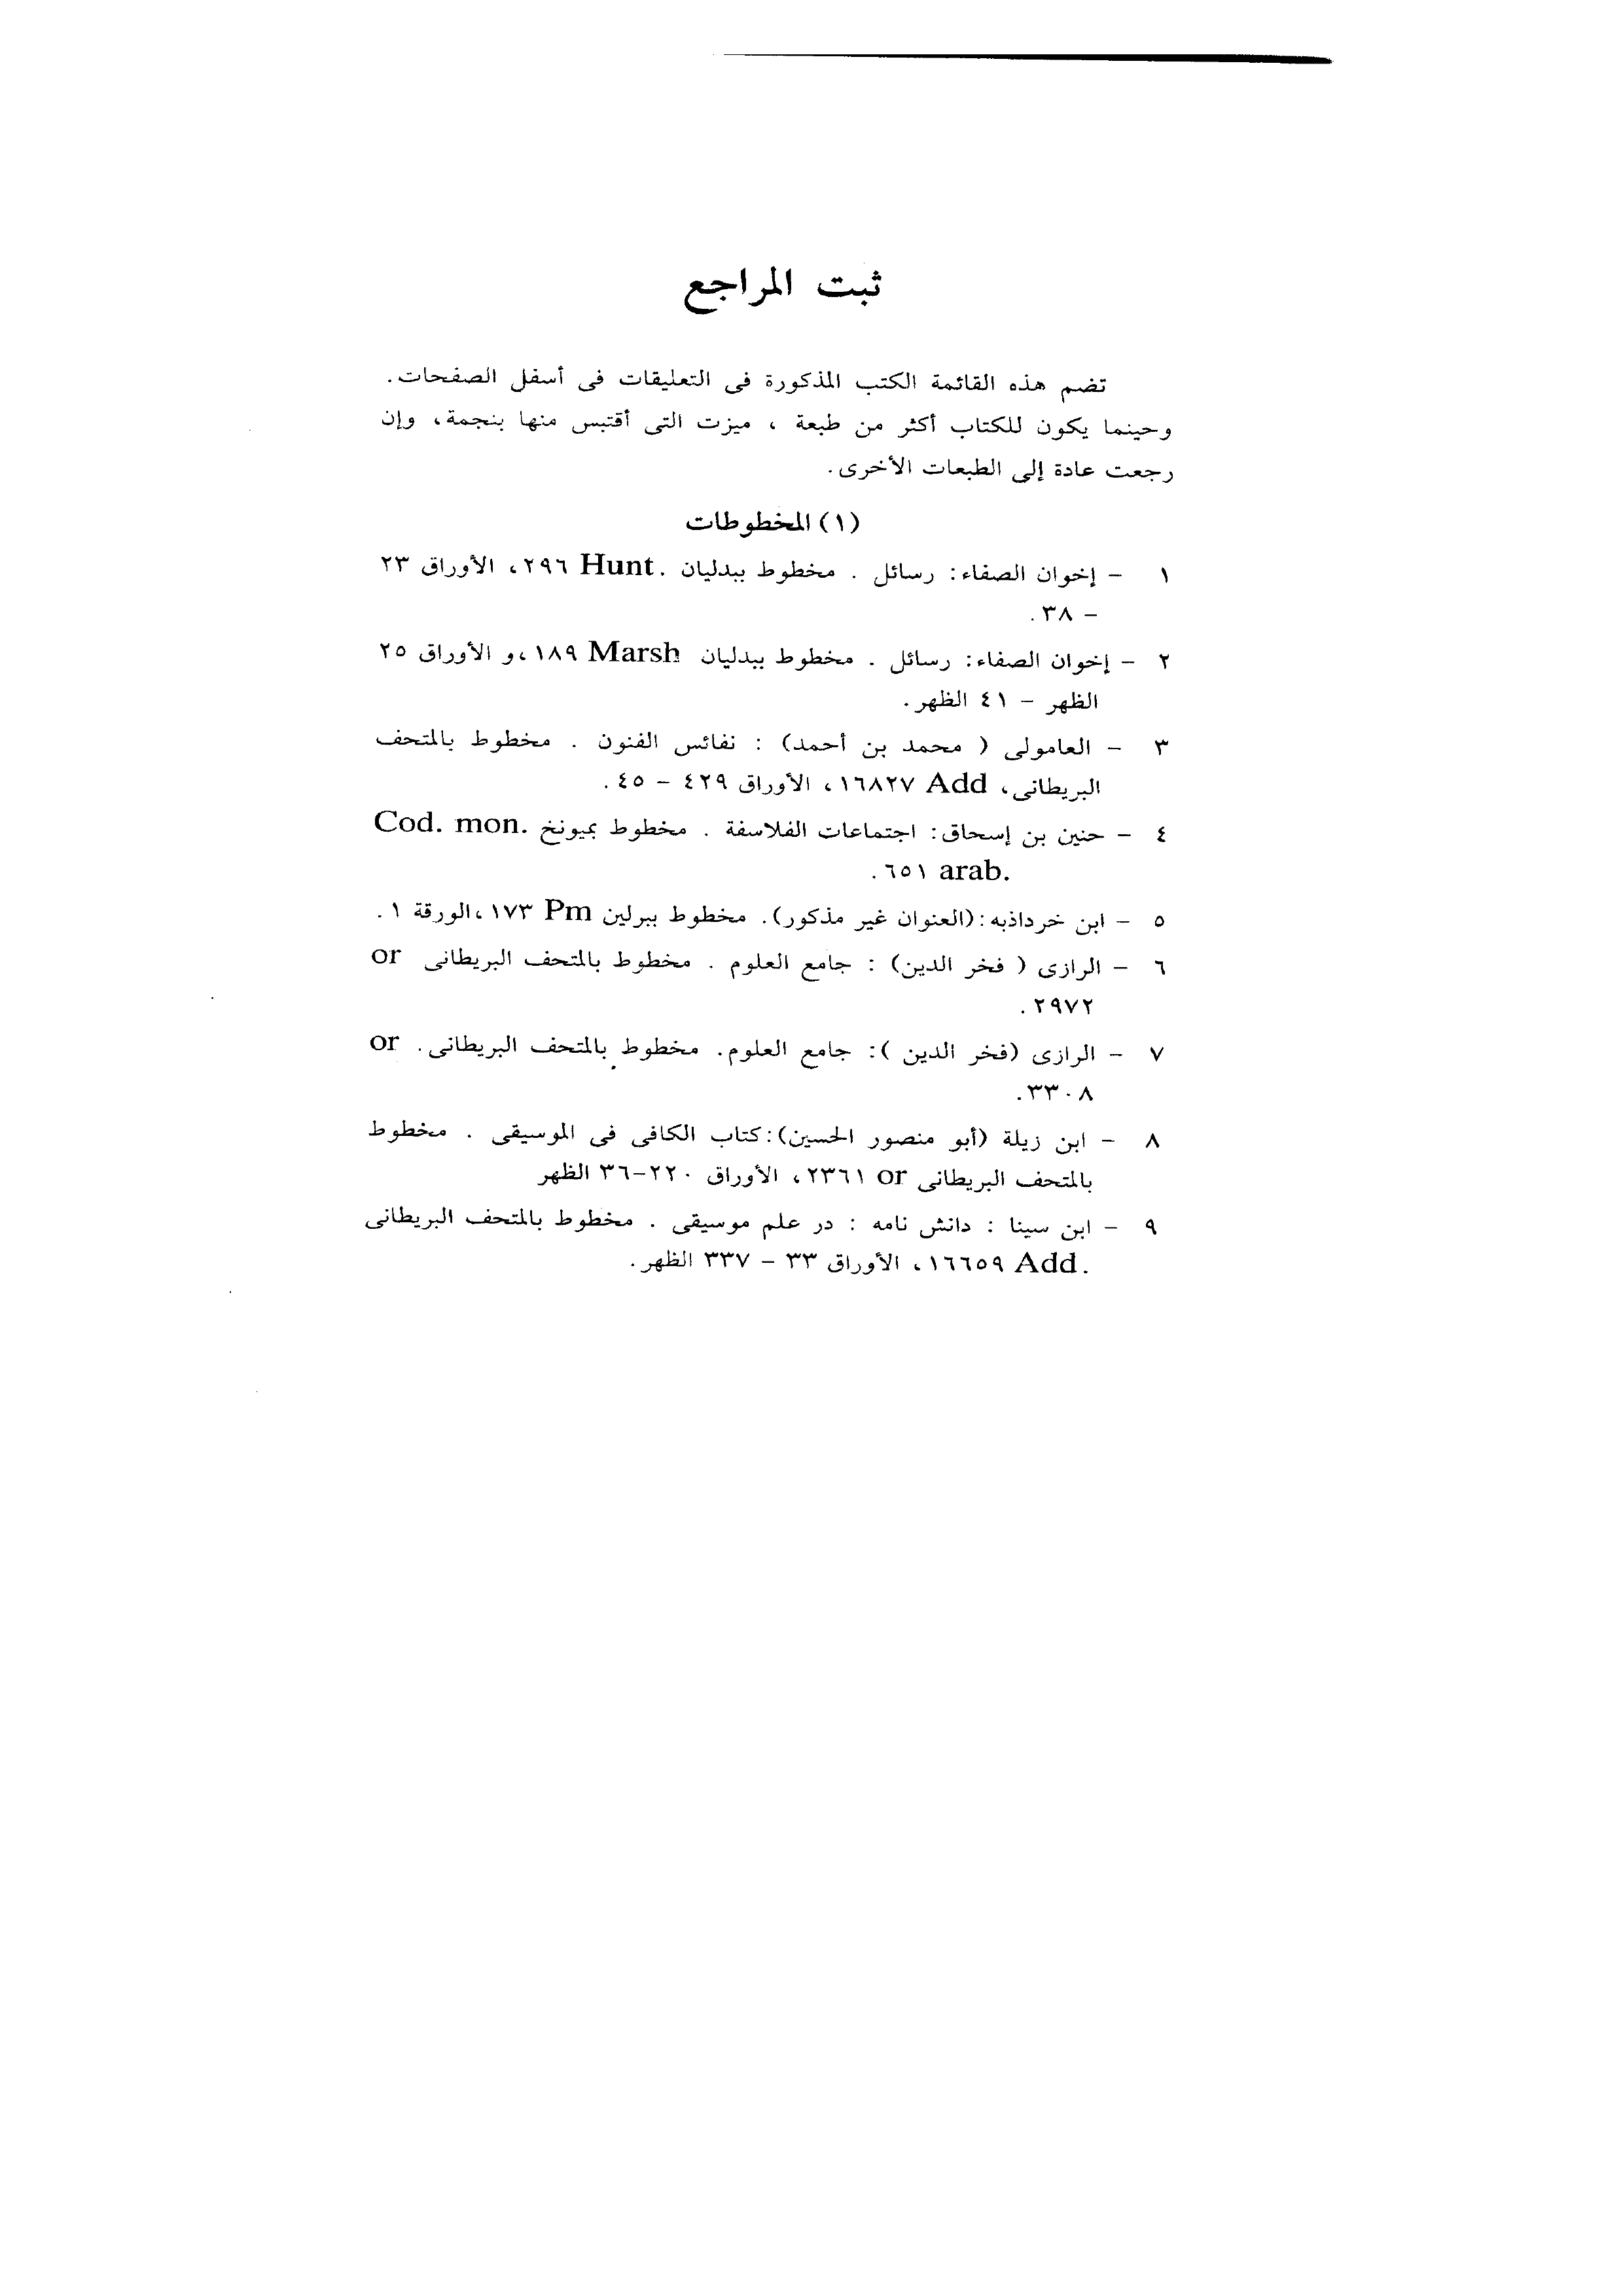 ثبت المراجع
تضم هذه القائمة الكتب المذكورة فى التعليقات فى أسفل الصفحات.
وحينما يكون للكتاب أكثر من طبعة ، ميزت التى أقتبس منها بنجمة، وإن
رجعت عادة إلى الطبعات الأخرى.
(١) المخطوطات
١ - إخوان الصفاء: رسائل . مخطوط ببدليان Hunt. ٢٩٦، الأوراق ٢٣
- ٣٨.
٢ - إخوان الصفاء: رسائل . مخطوط ببدليان Marsh ١٨٩،و الأوراق ٢٥
الظهر - ٤١ الظهر.
٣ - العامولى ( محمد بن أحمد) : نفائس الفنون . مخطوط بالمتحف
البريطانى، Add ١٦٨٢٧، الأوراق ٤٢٩ - ٤٥.
٤ - حنين بن إسحاق: اجتماعات الفلاسفة . مخطوط بميونخ Cod. mon.
arab. ٦٥١.
٥ - ابن خرداذبه:(العنوان غير مذكور). مخطوط ببرلين Pm ١٧٣،الورقة ١.
٦ - الرازى ( فخر الدين) : جامع العلوم . مخطوط بالمتحف البريطانى or
٢٩٧٢.
٧ - الرازى (فخر الدين ): جامع العلوم. مخطوط بالمتحف البريطانى. or
٣٣٠٨.
٨ - ابن زيلة (أبو منصور الحسين):كتاب الكافى فى الموسيقى . مخطوط
بالمتحف البريطانى or ٢٣٦١، الأوراق ٢٢٠-٣٦ الظهر
٩ - ابن سينا : دانش نامه : در علم موسيقى . مخطوط بالمتحف البريطانى
Add. ١٦٦٥٩، الأوراق ٣٣ - ٣٣٧ الظهر.